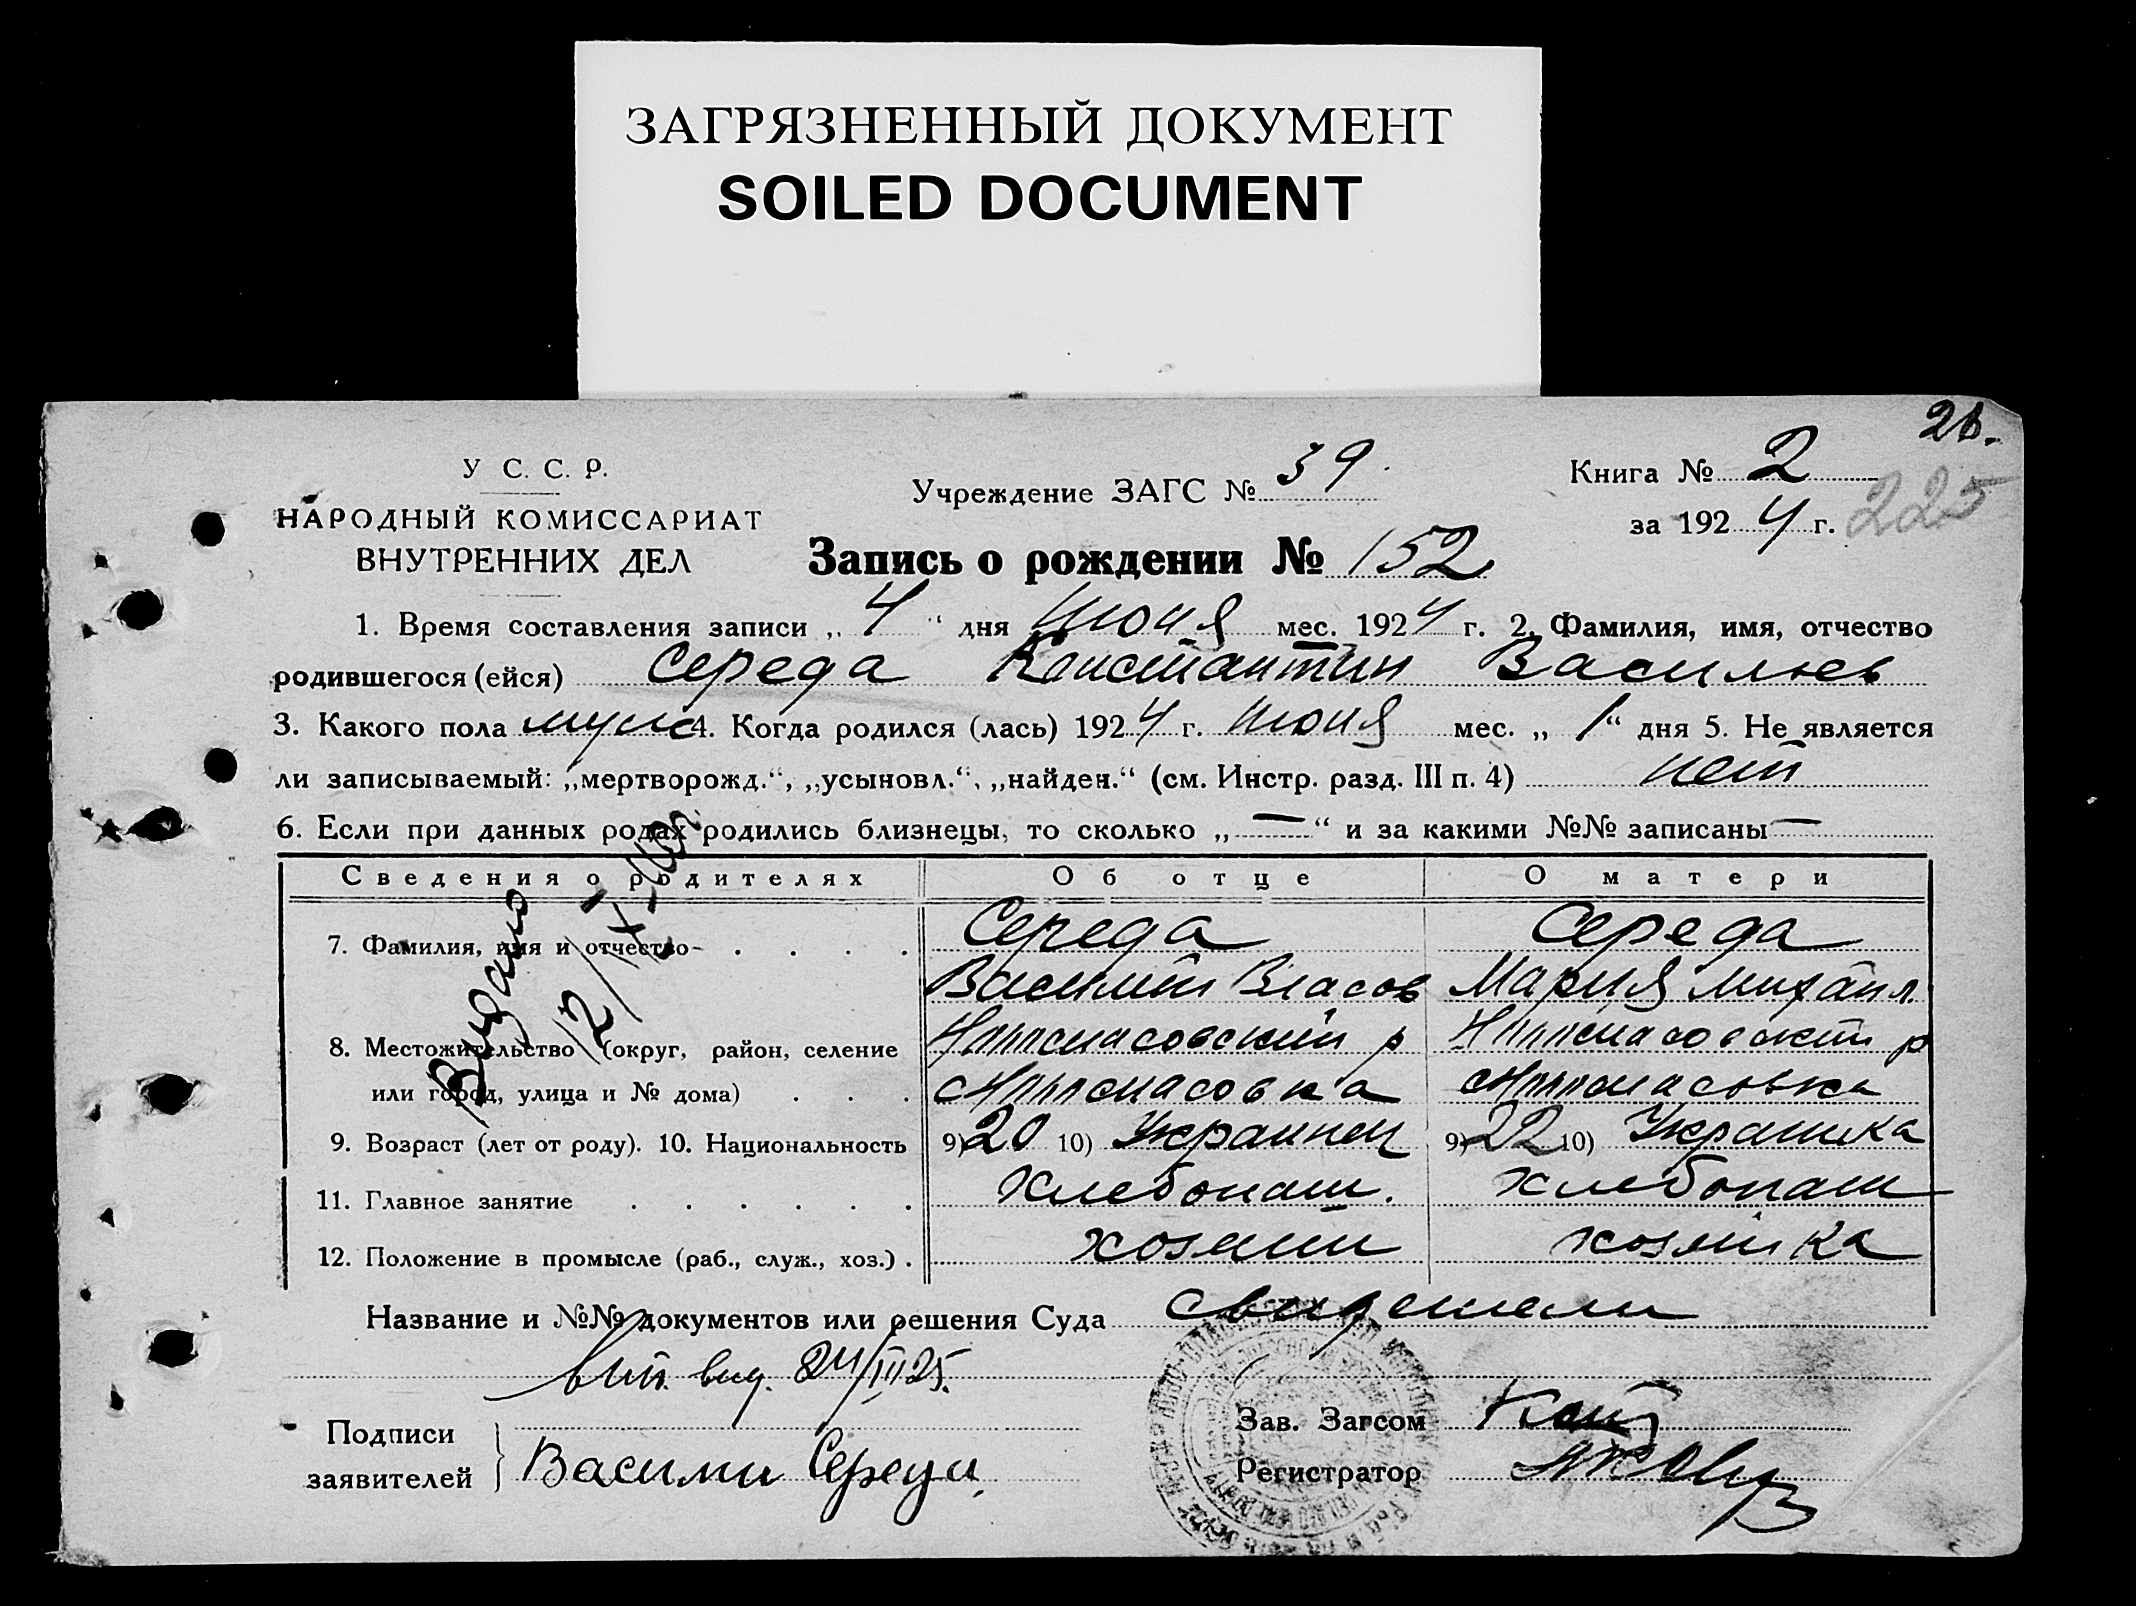 ЗАГРЯЗНЕННЫЙ ДОКУМЕНТ
SOILED DOCUMENT
26.
У С. С. Р.
НАРОДНЫЙ КОМИССАРИАТ
ВНУТРЕННИХ ДЕЛ
Учреждение ЗАГС № 39.
Книга № 2
за 1924 г. 225
Запись о рождении № 152
1. Время составления записи „ 4 “ дня июня мес. 1924 г. 2. Фамилия, имя, отчество
родившегося (ейся) Середа Константин Васильев
3. Какого пола муж 4. Когда родился (лась) 1924 г. июня мес. „ 1 “ дня 5. Не является
ли записываемый: „мертворожд.“, „усыновл.“, „найден.“ (см. Инстр. разд. III п. 4) нет
6. Если при данных родах родились близнецы, то сколько „ — “ и за какими №№ записаны —
Сведения о родителях Об отце О матери
7. Фамилия, имя и отчество Середа Середа
Василий Власов Мария Михайл.
8. Местожительство (округ, район, селение
или город, улица и № дома)
9. Возраст (лет от роду). 10. Национальность 9) 20 10) Украинец 9) 22 10) Украинка
11. Главное занятие Хлебопаш. хлебопаш
12. Положение в промысле (раб., служ., хоз.) хозяин хозяйка
Выдано
12/IX-
Название и №№ документов или решения Суда свидетели
вид. 24/III 25.
Подписи
заявителей Василий Середа
Зав. Загсом
Регистратор